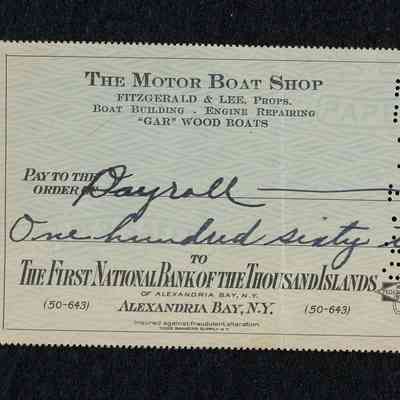 THE MOTOR BOAT SHOP
FITZGERALD & LEE, PROPS.
BOAT BUILDING - ENGINE REPAIRING
"GAR" WOOD BOATS
PAY TO THE
ORDER OF Payroll
One hundred sixty
TO
THE FIRST NATIONAL BANK OF THE THOUSAND ISLANDS
OF ALEXANDRIA BAY, N.Y.
(50-643) ALEXANDRIA BAY, N.Y. (50-643)
Insured against fraudulent alteration
TODD BANKERS SUPPLY N.Y.